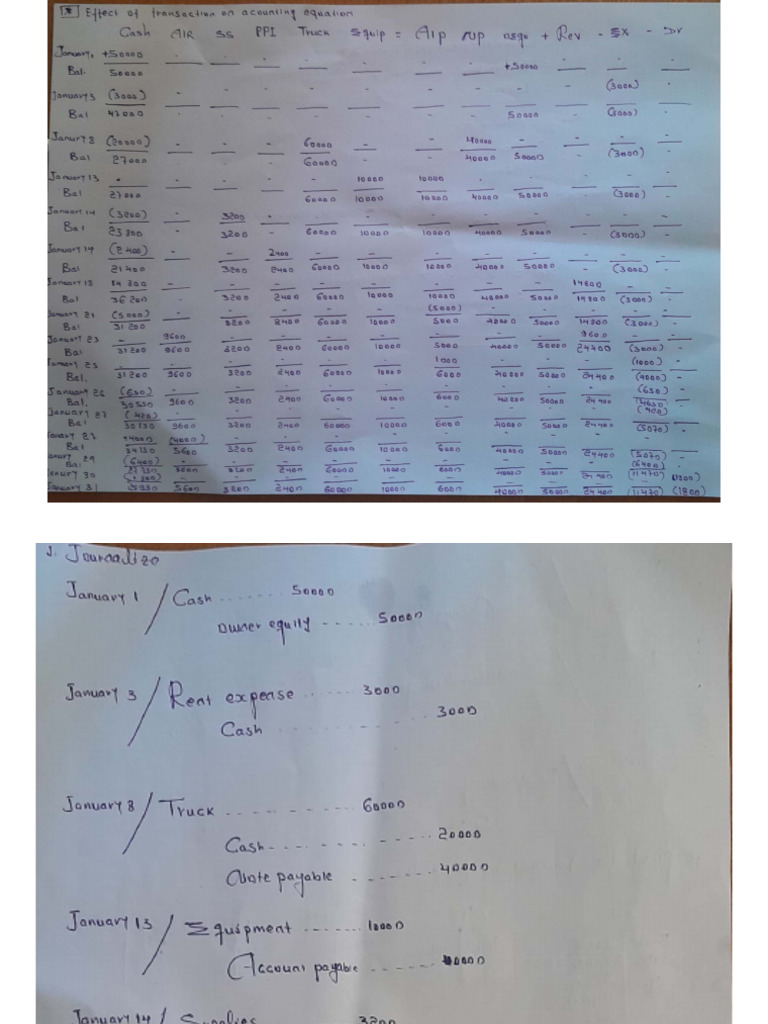 * Effect of transaction on acounting equation
Cash AIR SS PPI Truck Equip = A/p N/p + Rev - EX - Dr
January, +50000 - - - - - - - +50000 - - -
Bal. 50000
January 3 (3000) - - - - - - - - - (3000) -
Bal 47000 - - - - - - - 50000 - (3000) -
Janury 8 (20000) - - - 60000 - - 40000 - - - -
Bal 27000 - - - 60000 - - 40000 50000 - (3000) -
January 13 - - - - - 10000 10000 - - - - -
Bal 27000 - - - 60000 10000 10000 40000 50000 - (3000) -
January 14 (3200) - 3200 - - - - - - - - -
Bal 23800 - 3200 - 60000 10000 10000 40000 50000 - (3000) -
January 14 (2400) - - 2400 - - - - - - - -
Bal 21400 3200 2400 60000 10000 10000 40000 50000 - (3000) -
January 18 14800 - - - - - - - - 14800 - -
Bal 36200 - 3200 2400 60000 10000 10000 40000 50000 14800 (3000) -
January 21 (5000) - - - - - (5000) - - - - -
Bal 31200 - 3200 2400 60000 10000 5000 40000 50000 14800 (3000) -
January 23 - 9600 - - - - - - - 9600 - -
Bal 31200 9600 3200 2400 60000 10000 5000 40000 50000 24400 (3000) -
January 25 - - - - - - 1000 - - - (1000) -
Bal. 31200 9600 3200 2400 60000 10000 6000 40000 50000 24400 (4000) -
January 26 (650) - - - - - - - - - (650) -
Bal. 30550 9600 3200 2400 60000 10000 6000 40000 50000 24400 (4650)
January 27 - - - - - - - - -
Bal 30130 9600 3200 2400 60000 10000 6000 40000 50000 24400 (5070) -
4000 (4000) - - - - - - - - - -
Bal 34130 5600 3200 2400 60000 10000 6000 40000 50000 24400 (5070) -
29 (6400) - - - - - - - - - (6400) -
Bal 3200 2400 60000 10000 6000 40000 50000 24400 (11470)
30 - - - - - - - - - - (1800)
January 31 5600 3200 2400 60000 10000 6000 40000 50000 24400 (11470) (1800)
1. Journalize
January 1 / Cash ....... 50000
owner equity ...... 50000
January 3 / Rent expense ...... 3000
Cash ........ 3000
January 8 / Truck .......... 60000
Cash.......... 20000
Note payable ....... 40000
January 13 / Equipment ....... 10000
Account payable ...... 10000
January 14 / Supplies 3200